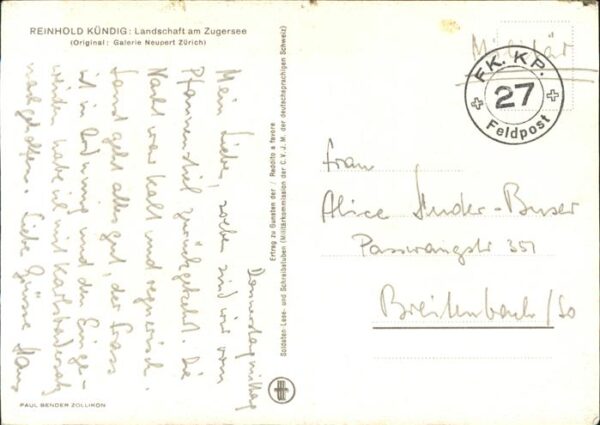 REINHOLD KÜNDIG: Landschaft am Zugersee
(Original: Galerie Neupert Zürich)
Donnerstagmittag
Mein Lieber, soeben sind wir vom
Pfannenstiel zurückgekehrt. Die
Nacht war kalt und regnerisch.
Sonst geht alles gut, der Frass
ist in Ordnung und den Einge-
weiden habe ich mit Karlsbadersalz
nachgeholfen. Liebe Grüsse Hans
PAUL BENDER ZOLLIKON
Ertrag zu Gunsten der / Reddito a favore
Soldaten Lese- und Schreibstuben (Militärkommission der C.V.J.M. der deutschsprachigen Schweiz)
Militär
FK. KP.
27
Feldpost
Frau
Alice Studer-Buser
Passwangstr 351
Breitenbach/So